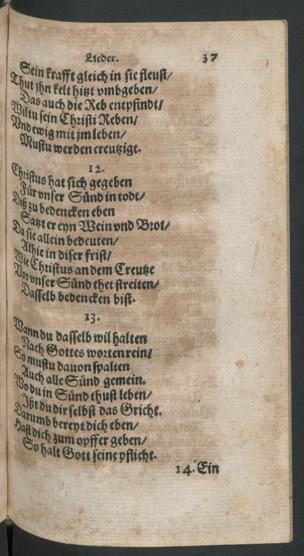 Lieder. 37
Sein krafft gleich in sie fleust/
Thut jhn kelt hitzt vmbgeben/
Das auch die Reb entpfindt/
Wiltu sein Christi Reben/
Vnd ewig mit jm leben/
Mustu werden creutzigt.
12.
Christus hat sich gegeben
Für vnser Sünd in todt/
Diß zu bedencken eben
Satzt er eyn Wein vnd Brot/
Da sie allein bedeuten/
Alhie in diser frist/
Wie Christus an dem Creutze
Vor vnser Sünd thet streiten/
Dasselb bedencken bist.
13.
Wann du dasselb wil halten
Nach Gottes worten rein/
So mustu dauon spalten
Auch alle Sünd gemein.
Wo du in Sünd thust leben/
Ißt du dir selbst das Gricht.
Darumb bereyt dich eben/
Hast dich zum opffer geben/
So halt Gott seine pflicht.
14. Ein